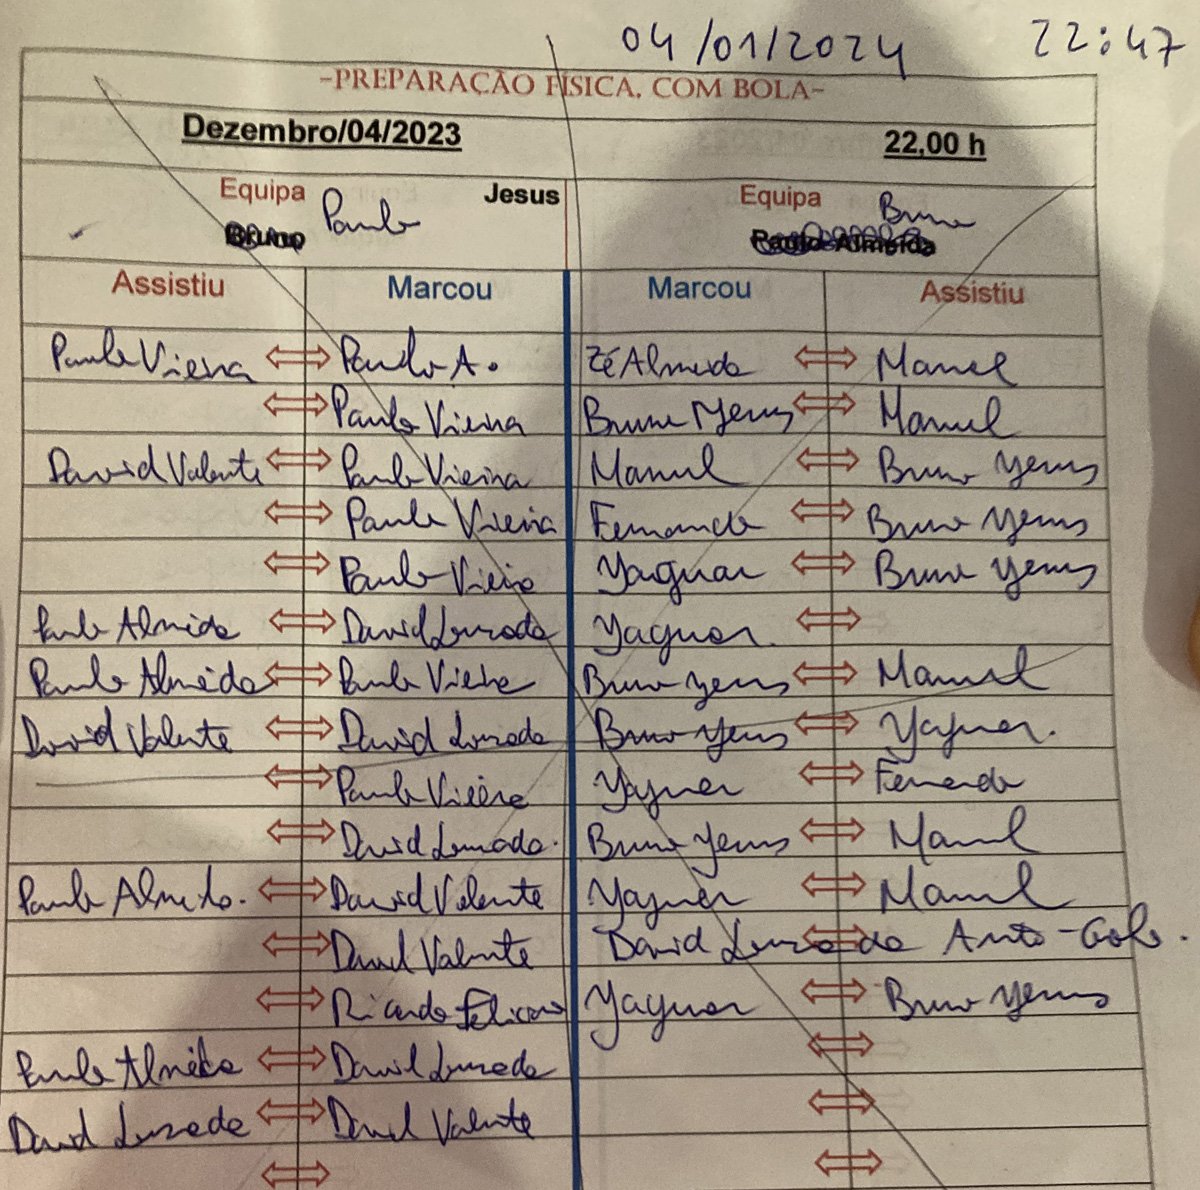 04/01/2024 22:47
-PREPARAÇÃO FÍSICA, COM BOLA-
Dezembro/04/2023 22,00 h
Equipa Paulo Jesus Equipa Bruno
Bruno Paulo Almeida
Assistiu Marcou Marcou Assistiu
Paulo Vieira Paulo A. Zé Almeida Manuel
Paulo Vieira Bruno Yerus Manuel
David Valente Paulo Vieira Manuel Bruno Yerus
Paulo Vieira Fernando Bruno Yerus
Paulo Vieira Yaguar Bruno Yerus
Paulo Almeida David Louzada Yaguer.
Paulo Almeida Paulo Vieira Bruno Yerus Manuel
David Valente David Louzada Bruno Yerus Yaguer.
Paulo Vieira Yaguer Fernando
David Louzada. Bruno Yerus Manuel
Paulo Almeida. David Valente Yaguer Manuel
David Valente David Louzada Auto-Golo.
Ricardo Feliciano Yaguer Bruno Yerus
Paulo Almeida David Louzada
David Louzada David Valente